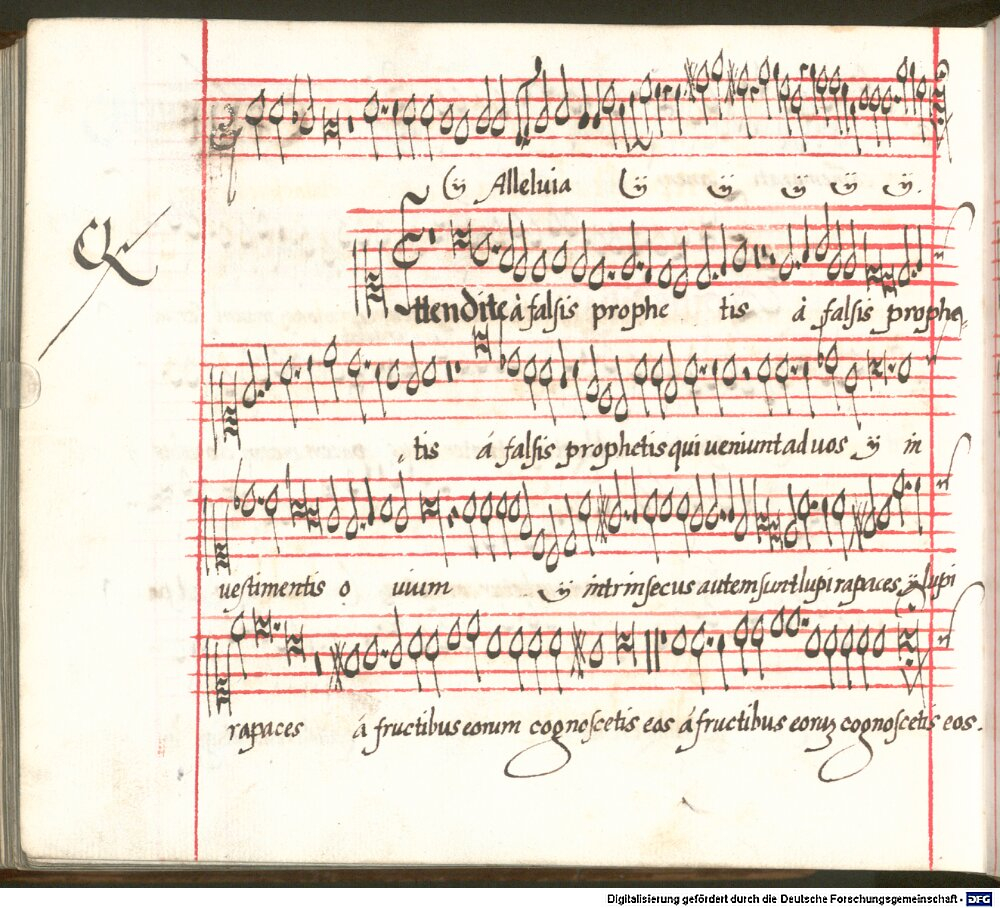 ij Alleluia ij ij ij ij ij.
Attendite à falsis prophe tis à falsis prophe„
tis á falsis prophetis qui ueniunt ad uos ij in
uestimentis o uium ij intrinsecus autem sunt lupi rapaces ij lupi
rapaces á fructibus eorum cognoscetis eos á fructibus eoruꝫ cognoscetis eos.
Digitalisierung gefördert durch die Deutsche Forschungsgemeinschaft - DFG